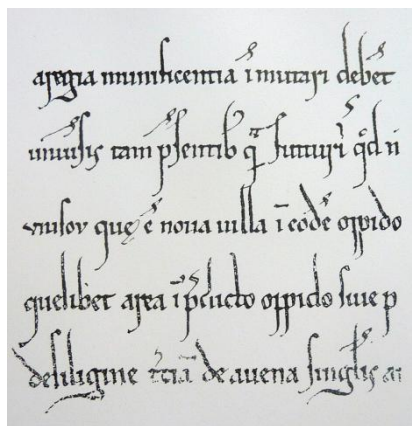 aregia munificentia ī mutari debet
uniuersis tam p̄sentib; qͣ futuris qͦd
que ē noua uilla ī eodē oppido
quelibet area ī p̄dicto oppido siue p
desiligine t̄ciā de auena singulis